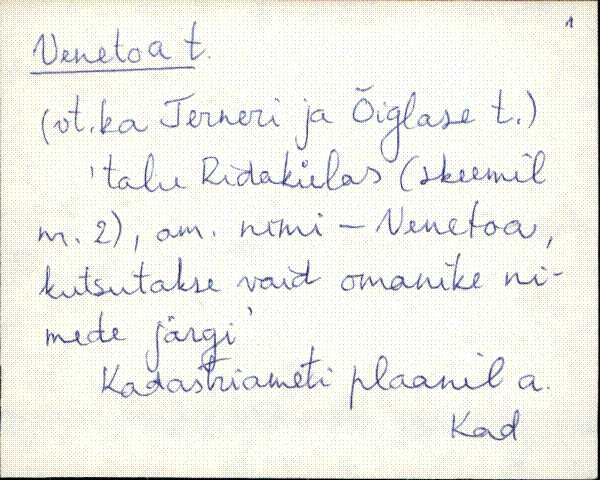 1
Venetoa t.
(vt. ka Terneri ja Õiglase t.)
'talu Ridakülas (skeemil
nr. 2), am. nimi – Venetoa,
kutsutakse vaid omanike ni-
mede järgi'
Kadastriameti plaanil a.
Kad